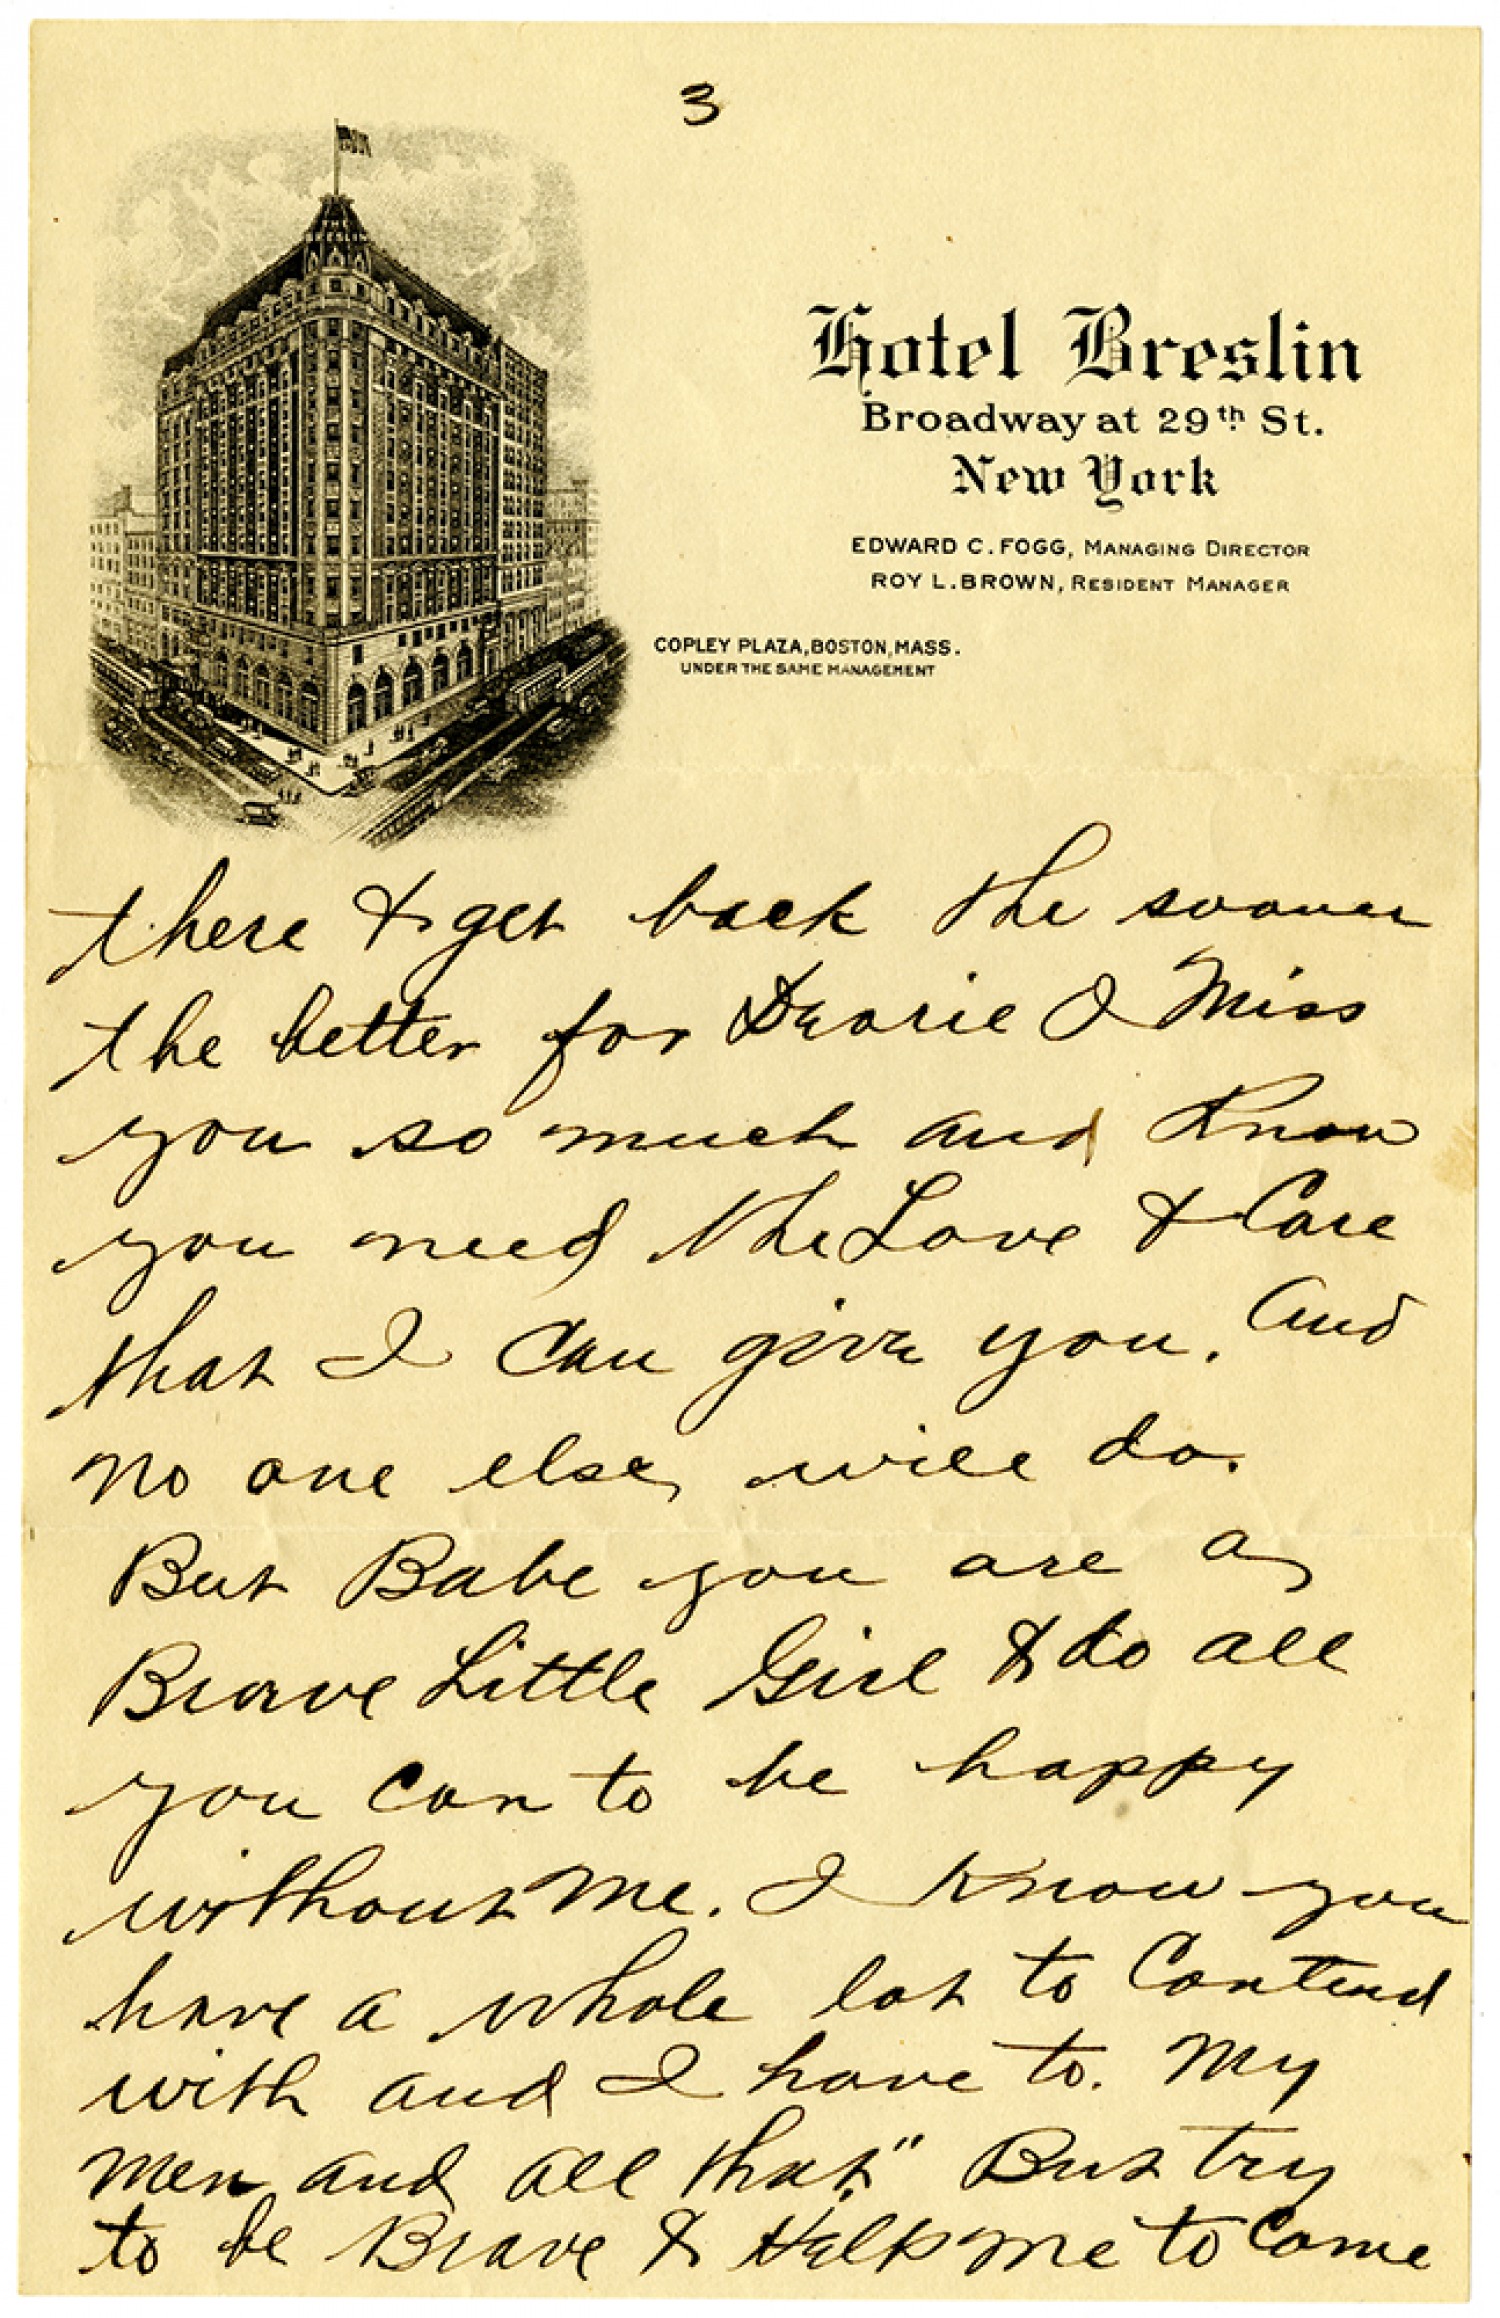 3
THE
BRESLIN
Hotel Breslin
Broadway at 29th St.
New York
EDWARD C. FOGG, MANAGING DIRECTOR
ROY L. BROWN, RESIDENT MANAGER
COPLEY PLAZA, BOSTON, MASS.
UNDER THE SAME MANAGEMENT
there & get back the sooner
the better for Dearie I Miss
you so much and Know
you need the Love & Care
that I Can give you. And
no one else, will do.
But Babe you are a
Brave Little Girl & do all
you Can to be happy
without me. I Know you
have a whole lot to Contend
with and I have to. My
men and all that." But try
to be Brave & Help me to Come